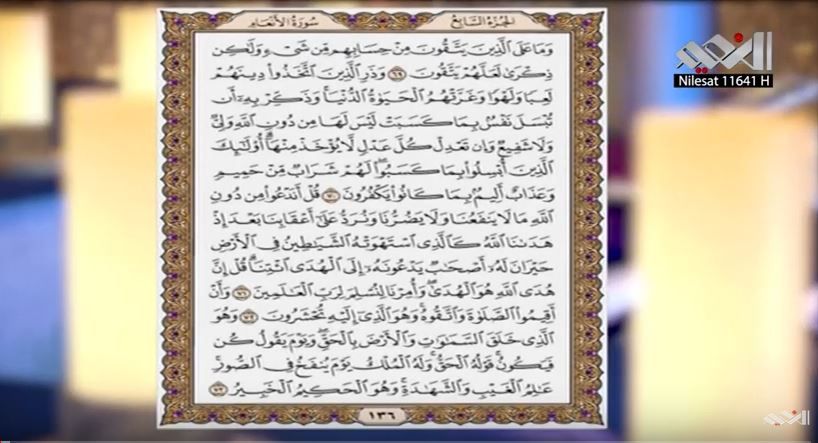 الجزء السابع
سورة الأنعام
وَمَا عَلَى الَّذِينَ يَتَّقُونَ مِنْ حِسَابِهِم مِّن شَيْءٍ وَلَٰكِن
ذِكْرَىٰ لَعَلَّهُمْ يَتَّقُونَ ٦٩ وَذَرِ الَّذِينَ اتَّخَذُوا دِينَهُمْ
لَعِبًا وَلَهْوًا وَغَرَّتْهُمُ الْحَيَوٰةُ الدُّنْيَا وَذَكِّرْ بِهِ أَن
تُبْسَلَ نَفْسٌ بِمَا كَسَبَتْ لَيْسَ لَهَا مِن دُونِ اللَّهِ وَلِيٌّ
وَلَا شَفِيعٌ وَإِن تَعْدِلْ كُلَّ عَدْلٍ لَّا يُؤْخَذْ مِنْهَا أُولَٰئِكَ
الَّذِينَ أُبْسِلُوا بِمَا كَسَبُوا لَهُمْ شَرَابٌ مِّنْ حَمِيمٍ
وَعَذَابٌ أَلِيمٌ بِمَا كَانُوا يَكْفُرُونَ ٧٠ قُلْ أَنَدْعُوا مِن دُونِ
اللَّهِ مَا لَا يَنفَعُنَا وَلَا يَضُرُّنَا وَنُرَدُّ عَلَىٰ أَعْقَابِنَا بَعْدَ إِذْ
هَدَىٰنَا اللَّهُ كَالَّذِي اسْتَهْوَتْهُ الشَّيَٰطِينُ فِي الْأَرْضِ
حَيْرَانَ لَهُ أَصْحَٰبٌ يَدْعُونَهُ إِلَى الْهُدَى ائْتِنَا قُلْ إِنَّ
هُدَى اللَّهِ هُوَ الْهُدَىٰ وَأُمِرْنَا لِنُسْلِمَ لِرَبِّ الْعَٰلَمِينَ ٧١ وَأَنْ
أَقِيمُوا الصَّلَوٰةَ وَاتَّقُوهُ وَهُوَ الَّذِي إِلَيْهِ تُحْشَرُونَ ٧٢ وَهُوَ
الَّذِي خَلَقَ السَّمَٰوَٰتِ وَالْأَرْضَ بِالْحَقِّ وَيَوْمَ يَقُولُ كُن
فَيَكُونُ قَوْلُهُ الْحَقُّ وَلَهُ الْمُلْكُ يَوْمَ يُنفَخُ فِي الصُّورِ
عَٰلِمُ الْغَيْبِ وَالشَّهَٰدَةِ وَهُوَ الْحَكِيمُ الْخَبِيرُ ٧٣
١٣٦
الغدير
Nilesat 11641 H
الغدير